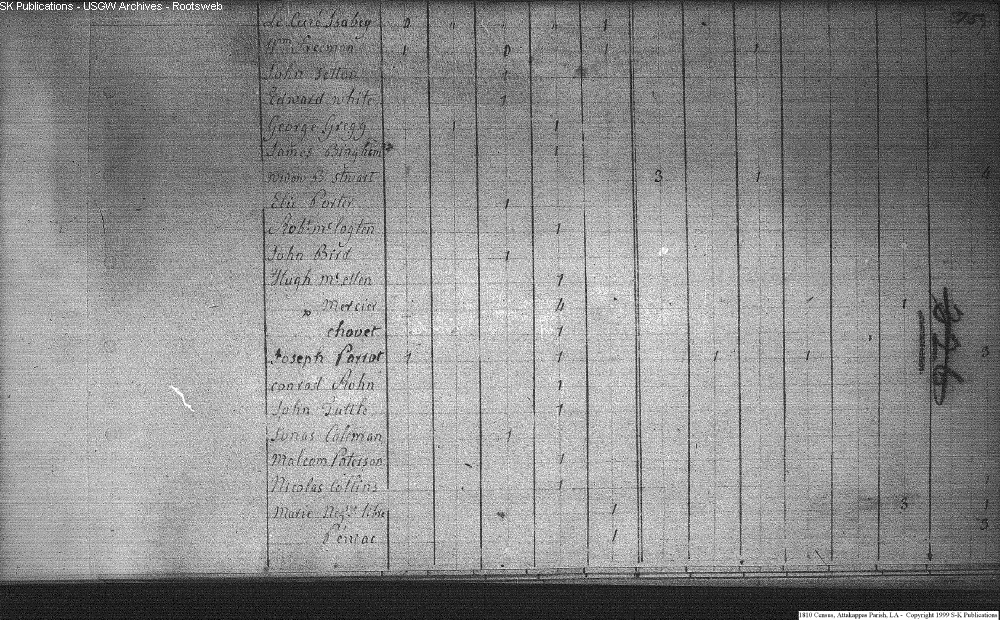 SK Publications - USGW Archives - Rootsweb
Le Curé Isabey 0 " " " 1
Wm Freeman 1 0 1 1
John 1
Edward White 1
George Gregg 1 1
James Bingham 1
Widow B. Stuart 3 1 4
Elie Porter 1
Robt 1
John Bird 1
Hugh 1
Mercier 4 1
chovet 1
Joseph Parrot 1 1 1 1 3
conrad Rohn 1
John Tuttle 1
Jonas Coleman 1
Malcom Paterson 1
Nicolas Collins 1 1
Marie Negss libre 1 3 1
1 3
326
1810 Census, Attakappas Parish, LA - Copyright 1999 S-K Publications